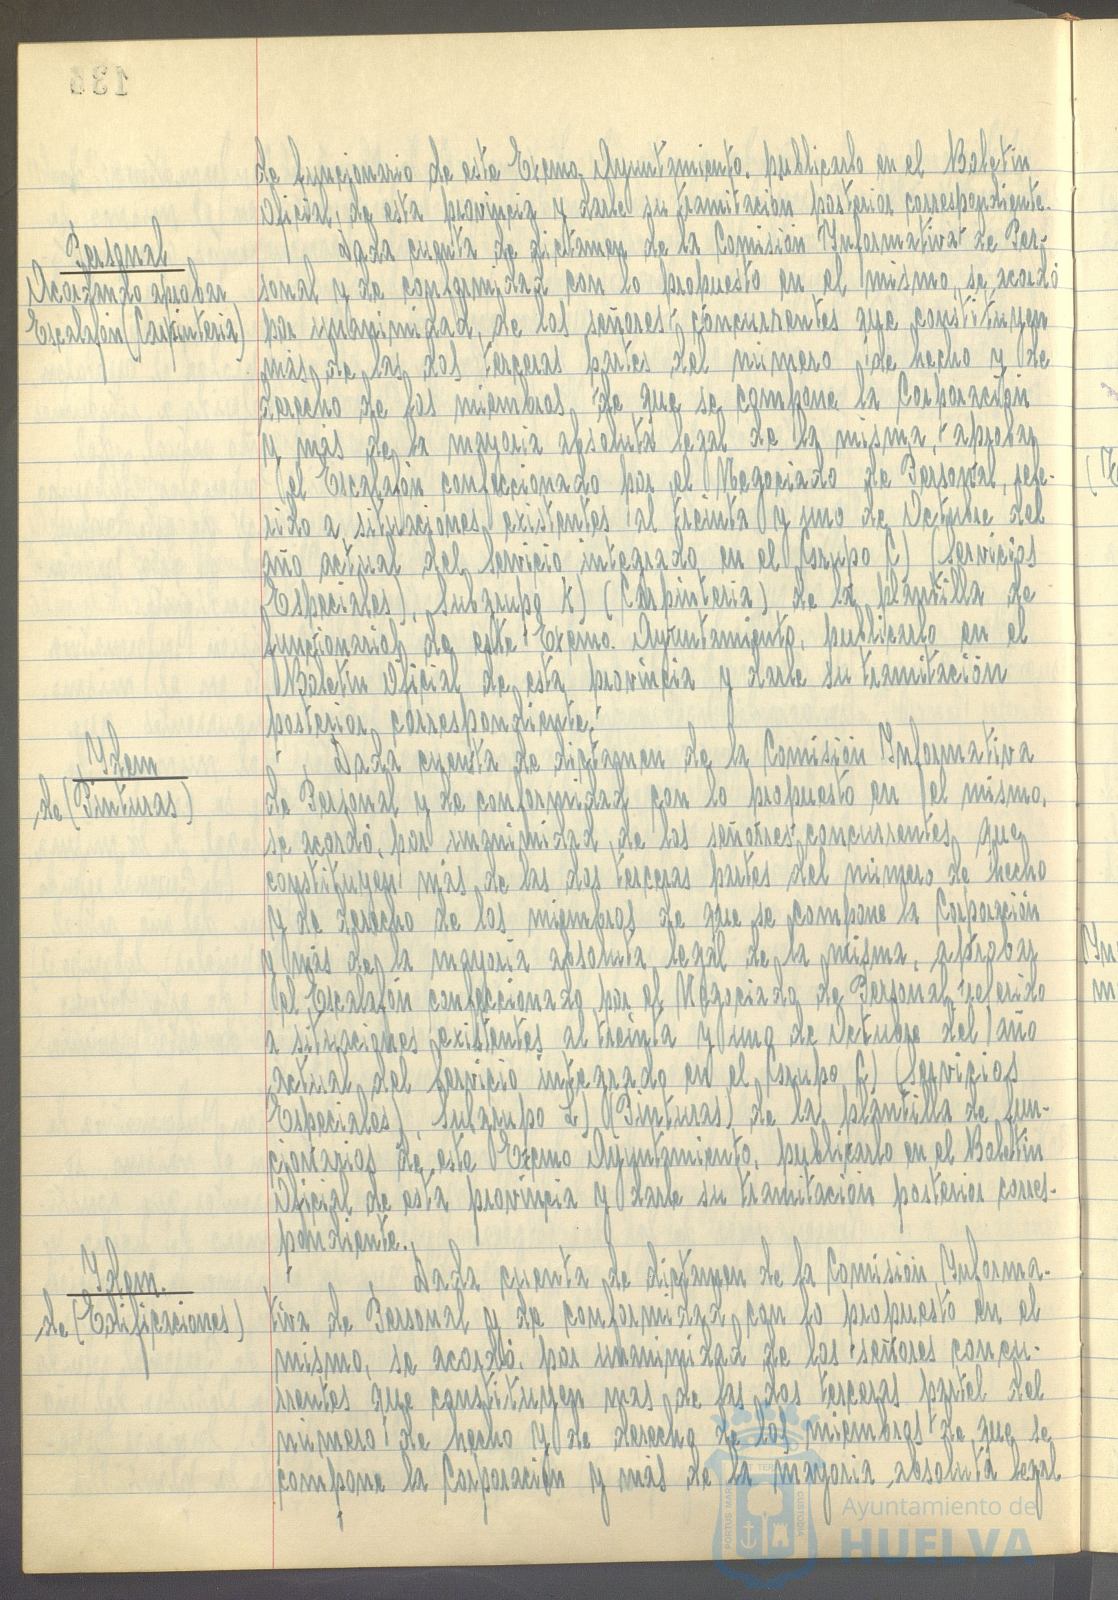 de funcionario de este Excmo. Ayuntamiento, publicarlo en el Boletin
Oficial, de esta provincia y darle su tramitación posterior correspondiente.
Personal
Acordando aprobar
Escalafón (Carpinteria)
Dada cuenta de dictamen de la Comisión Informativa de Per-
sonal y de conformidad con lo propuesto en el mismo, se acordó
por unanimidad, de los señores concurrentes que constituyen
más de las dos terceras partes del número de hecho y de
derecho de los miembros, de que se compone la Corporación
y más de la mayoria absoluta legal de la misma, aprobar
el Escalafón confeccionado por el Negociado de Personal, refe-
rido a situaciones existentes al treinta y uno de Octubre del
año actual del servicio integrado en el Grupo C) (Servicios
Especiales), Subgrupo K) (Carpinteria) de la plantilla de
funcionarios de este Excmo. Ayuntamiento, publicarlo en el
Boletin Oficial de esta provincia y darle su tramitación
posterior correspondiente.
Idem
de (Pinturas)
Dada cuenta de dictamen de la Comisión Informativa
de Personal y de conformidad con lo propuesto en el mismo,
se acordó, por unanimidad, de los señores concurrentes que
constituyen más de las dos terceras partes del número de hecho
y de derecho de los miembros de que se compone la Corporación
y más de la mayoria absoluta legal de la misma, aprobar
el Escalafón confeccionado por el Negociado de Personal, referido
a situaciones existentes al treinta y uno de Octubre del año
actual del servicio integrado en el Grupo C) (Servicios
Especiales), Subgrupo L) (Pinturas) de la plantilla de fun-
cionarios de este Excmo Ayuntamiento, publicarlo en el Boletin
Oficial de esta provincia y darle su tramitación posterior corres-
pondiente.
Idem.
de (Edificaciones)
Dada cuenta de dictamen de la Comisión Informa-
tiva de Personal y de conformidad con lo propuesto en el
mismo, se acordó, por unanimidad de los señores concu-
rrentes que constituyen mas de las dos terceras partes del
número de hecho y de derecho de los miembros de que se
compone la Corporación y más de la mayoria absoluta legal
Ayuntamiento de
HUELVA